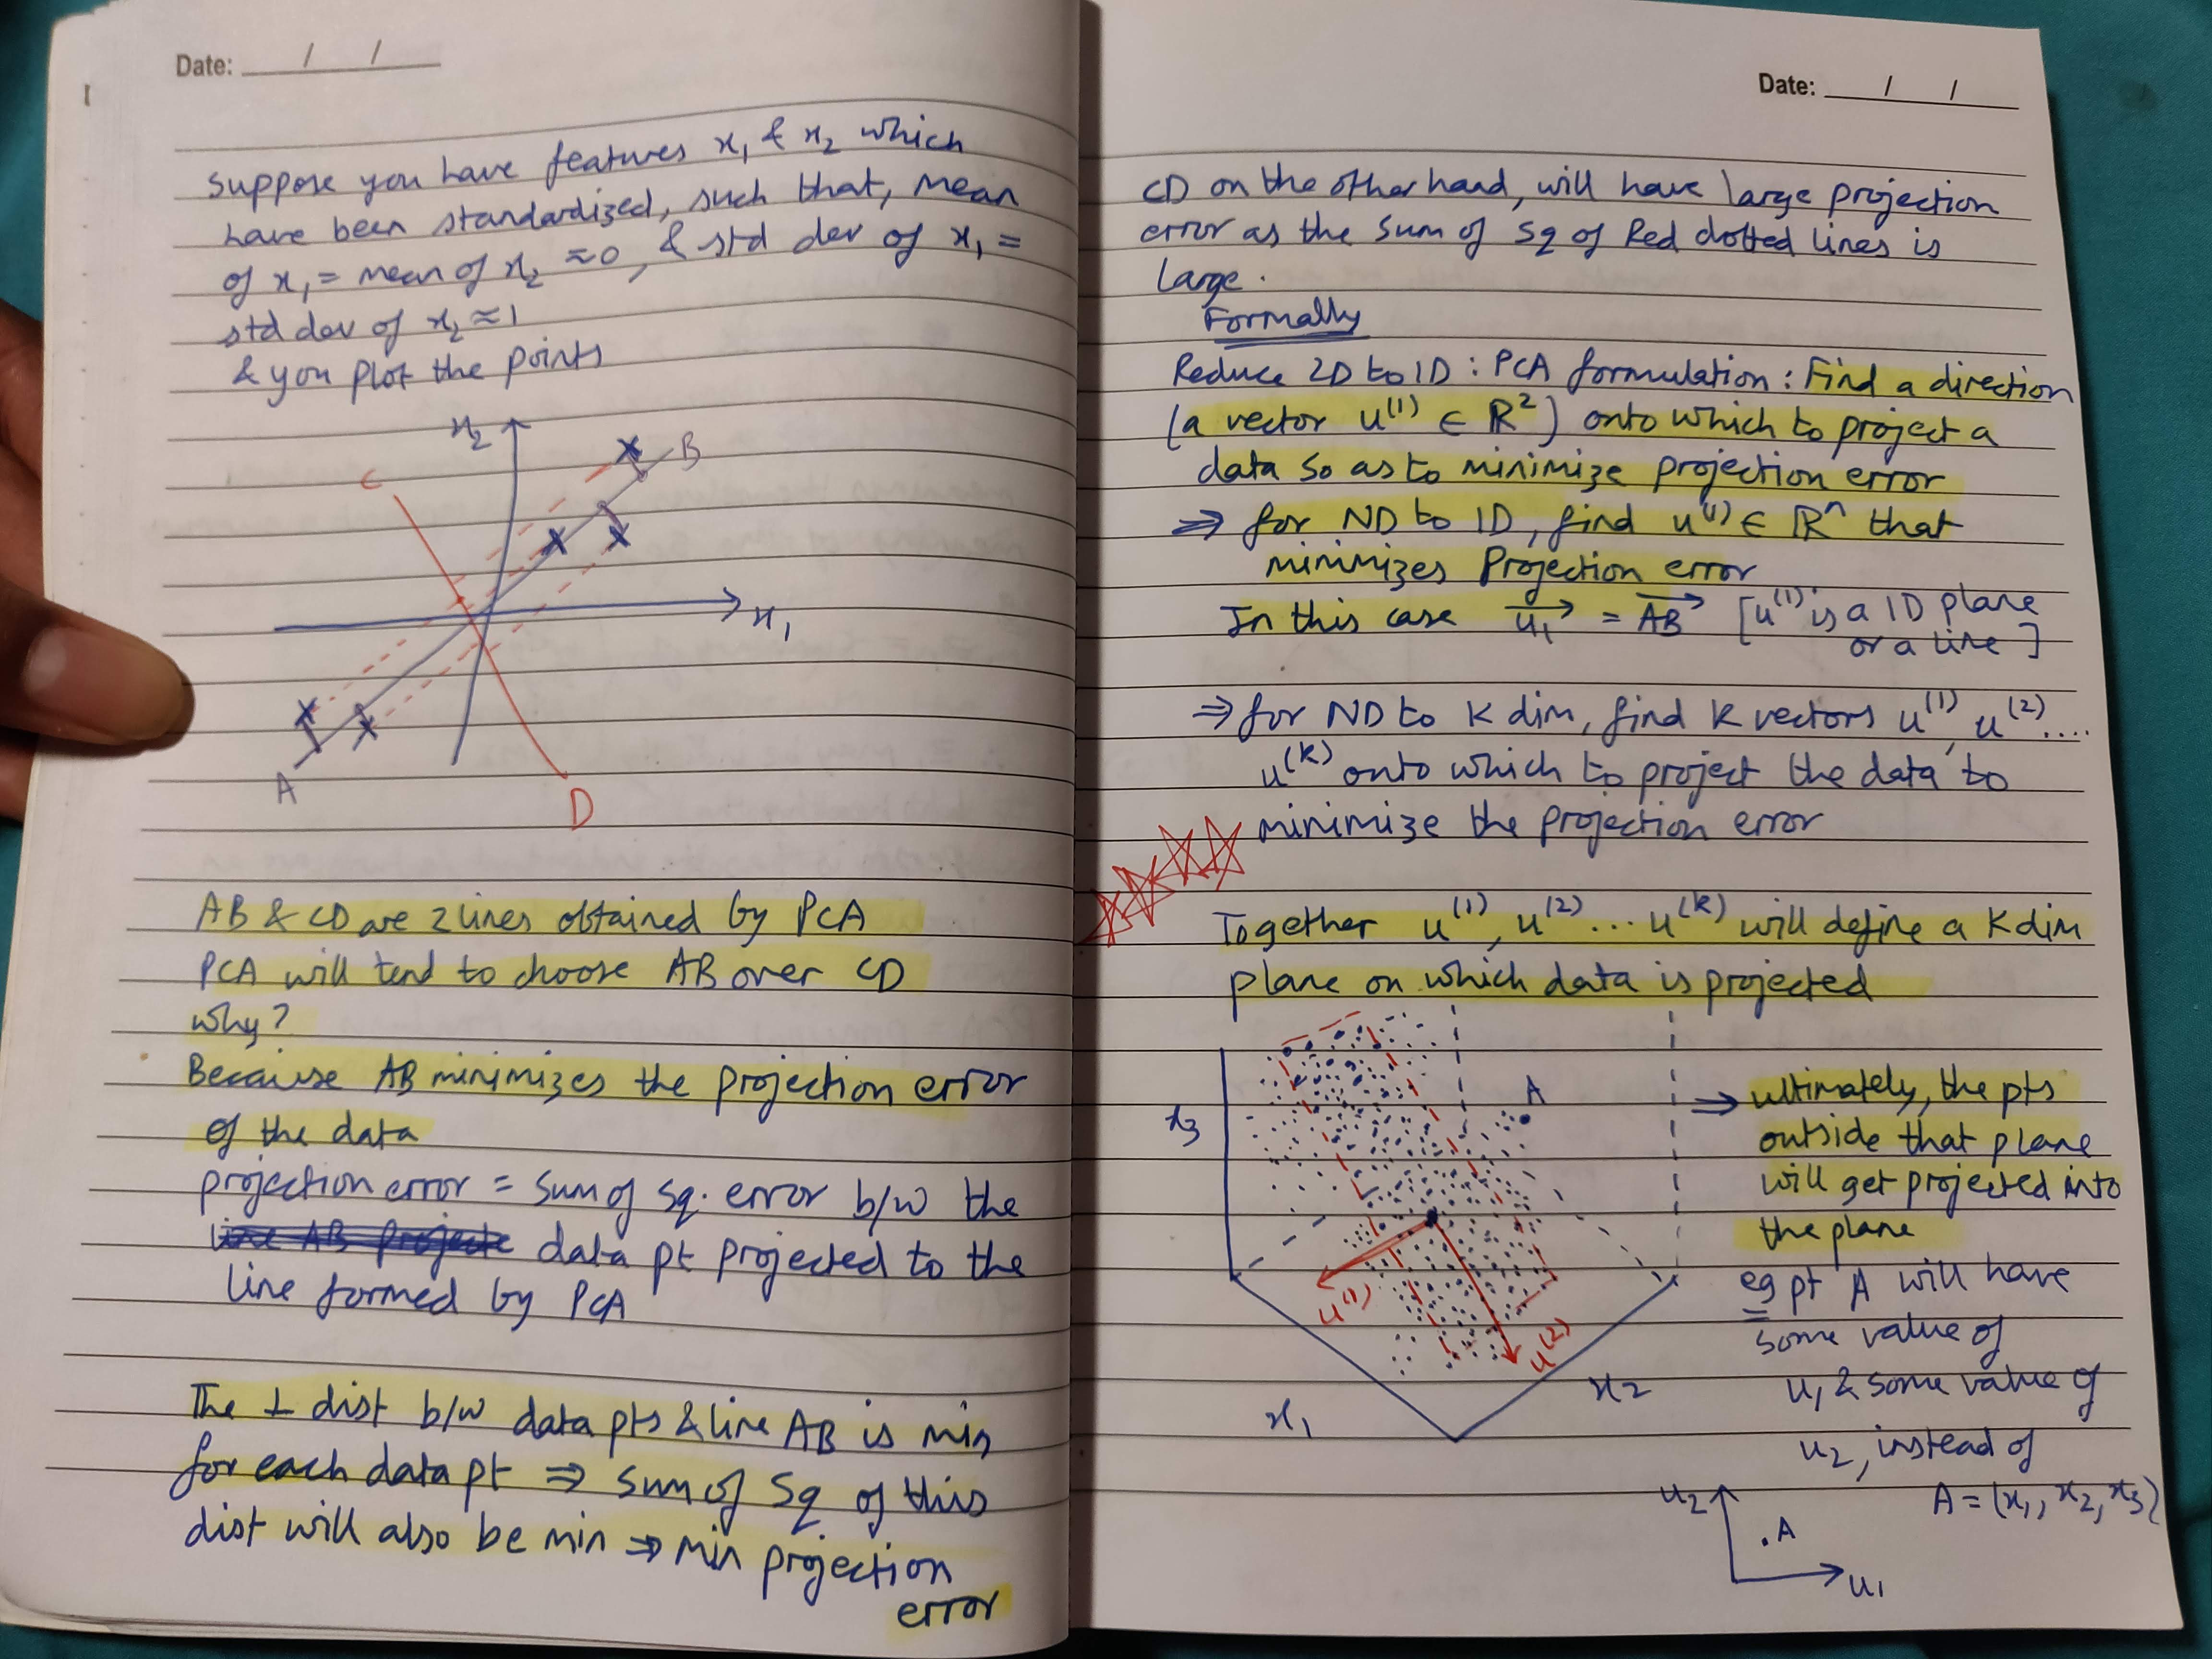 Date: __/__/__
Suppose you have features x₁ & x₂ which
have been standardized, such that, mean
of x₁ = mean of x₂ ≈ 0, & std dev of x₁ =
std dev of x₂ ≈ 1
& you plot the points
x₂
B
C
x₁
A
D
AB & CD are 2 lines obtained by PCA
PCA will tend to choose AB over CD
why?
Because AB minimizes the projection error
of the data
projection error = sum of sq. error b/w the
line AB projecte data pt projected to the
line formed by PCA
The ⊥ dist b/w data pts & line AB is min
for each data pt ⇒ sum of sq of this
dist will also be min ⇒ min projection
error
Date: __/__/__
CD on the other hand, will have large projection
error as the sum of sq of Red dotted lines is
large.
Formally
Reduce 2D to 1D : PCA formulation : Find a direction
(a vector u⁽¹⁾ ∈ ℝ²) onto which to project a
data so as to minimize projection error
⇒ for ND to 1D, find u⁽¹⁾ ∈ ℝⁿ that
minimizes Projection error
In this case u₁→ = AB→ [u⁽¹⁾ is a 1D plane
or a line]
⇒ for ND to K dim, find K vectors u⁽¹⁾, u⁽²⁾....
u⁽ᵏ⁾ onto which to project the data to
minimize the projection error
Together u⁽¹⁾, u⁽²⁾ ... u⁽ᵏ⁾ will define a K dim
plane on which data is projected
x₃
A
u⁽¹⁾
u⁽²⁾
x₁
x₂
⇒ ultimately, the pts
outside that plane
will get projected into
the plane
eg pt A will have
some value of
u₁ & some value of
u₂, instead of
A = (x₁, x₂, x₃)
u₂
.A
u₁